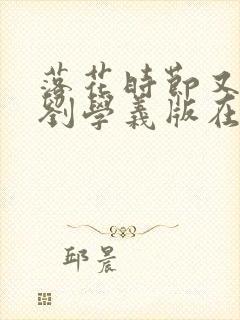 落花時節又
劉學義版在
邱晨